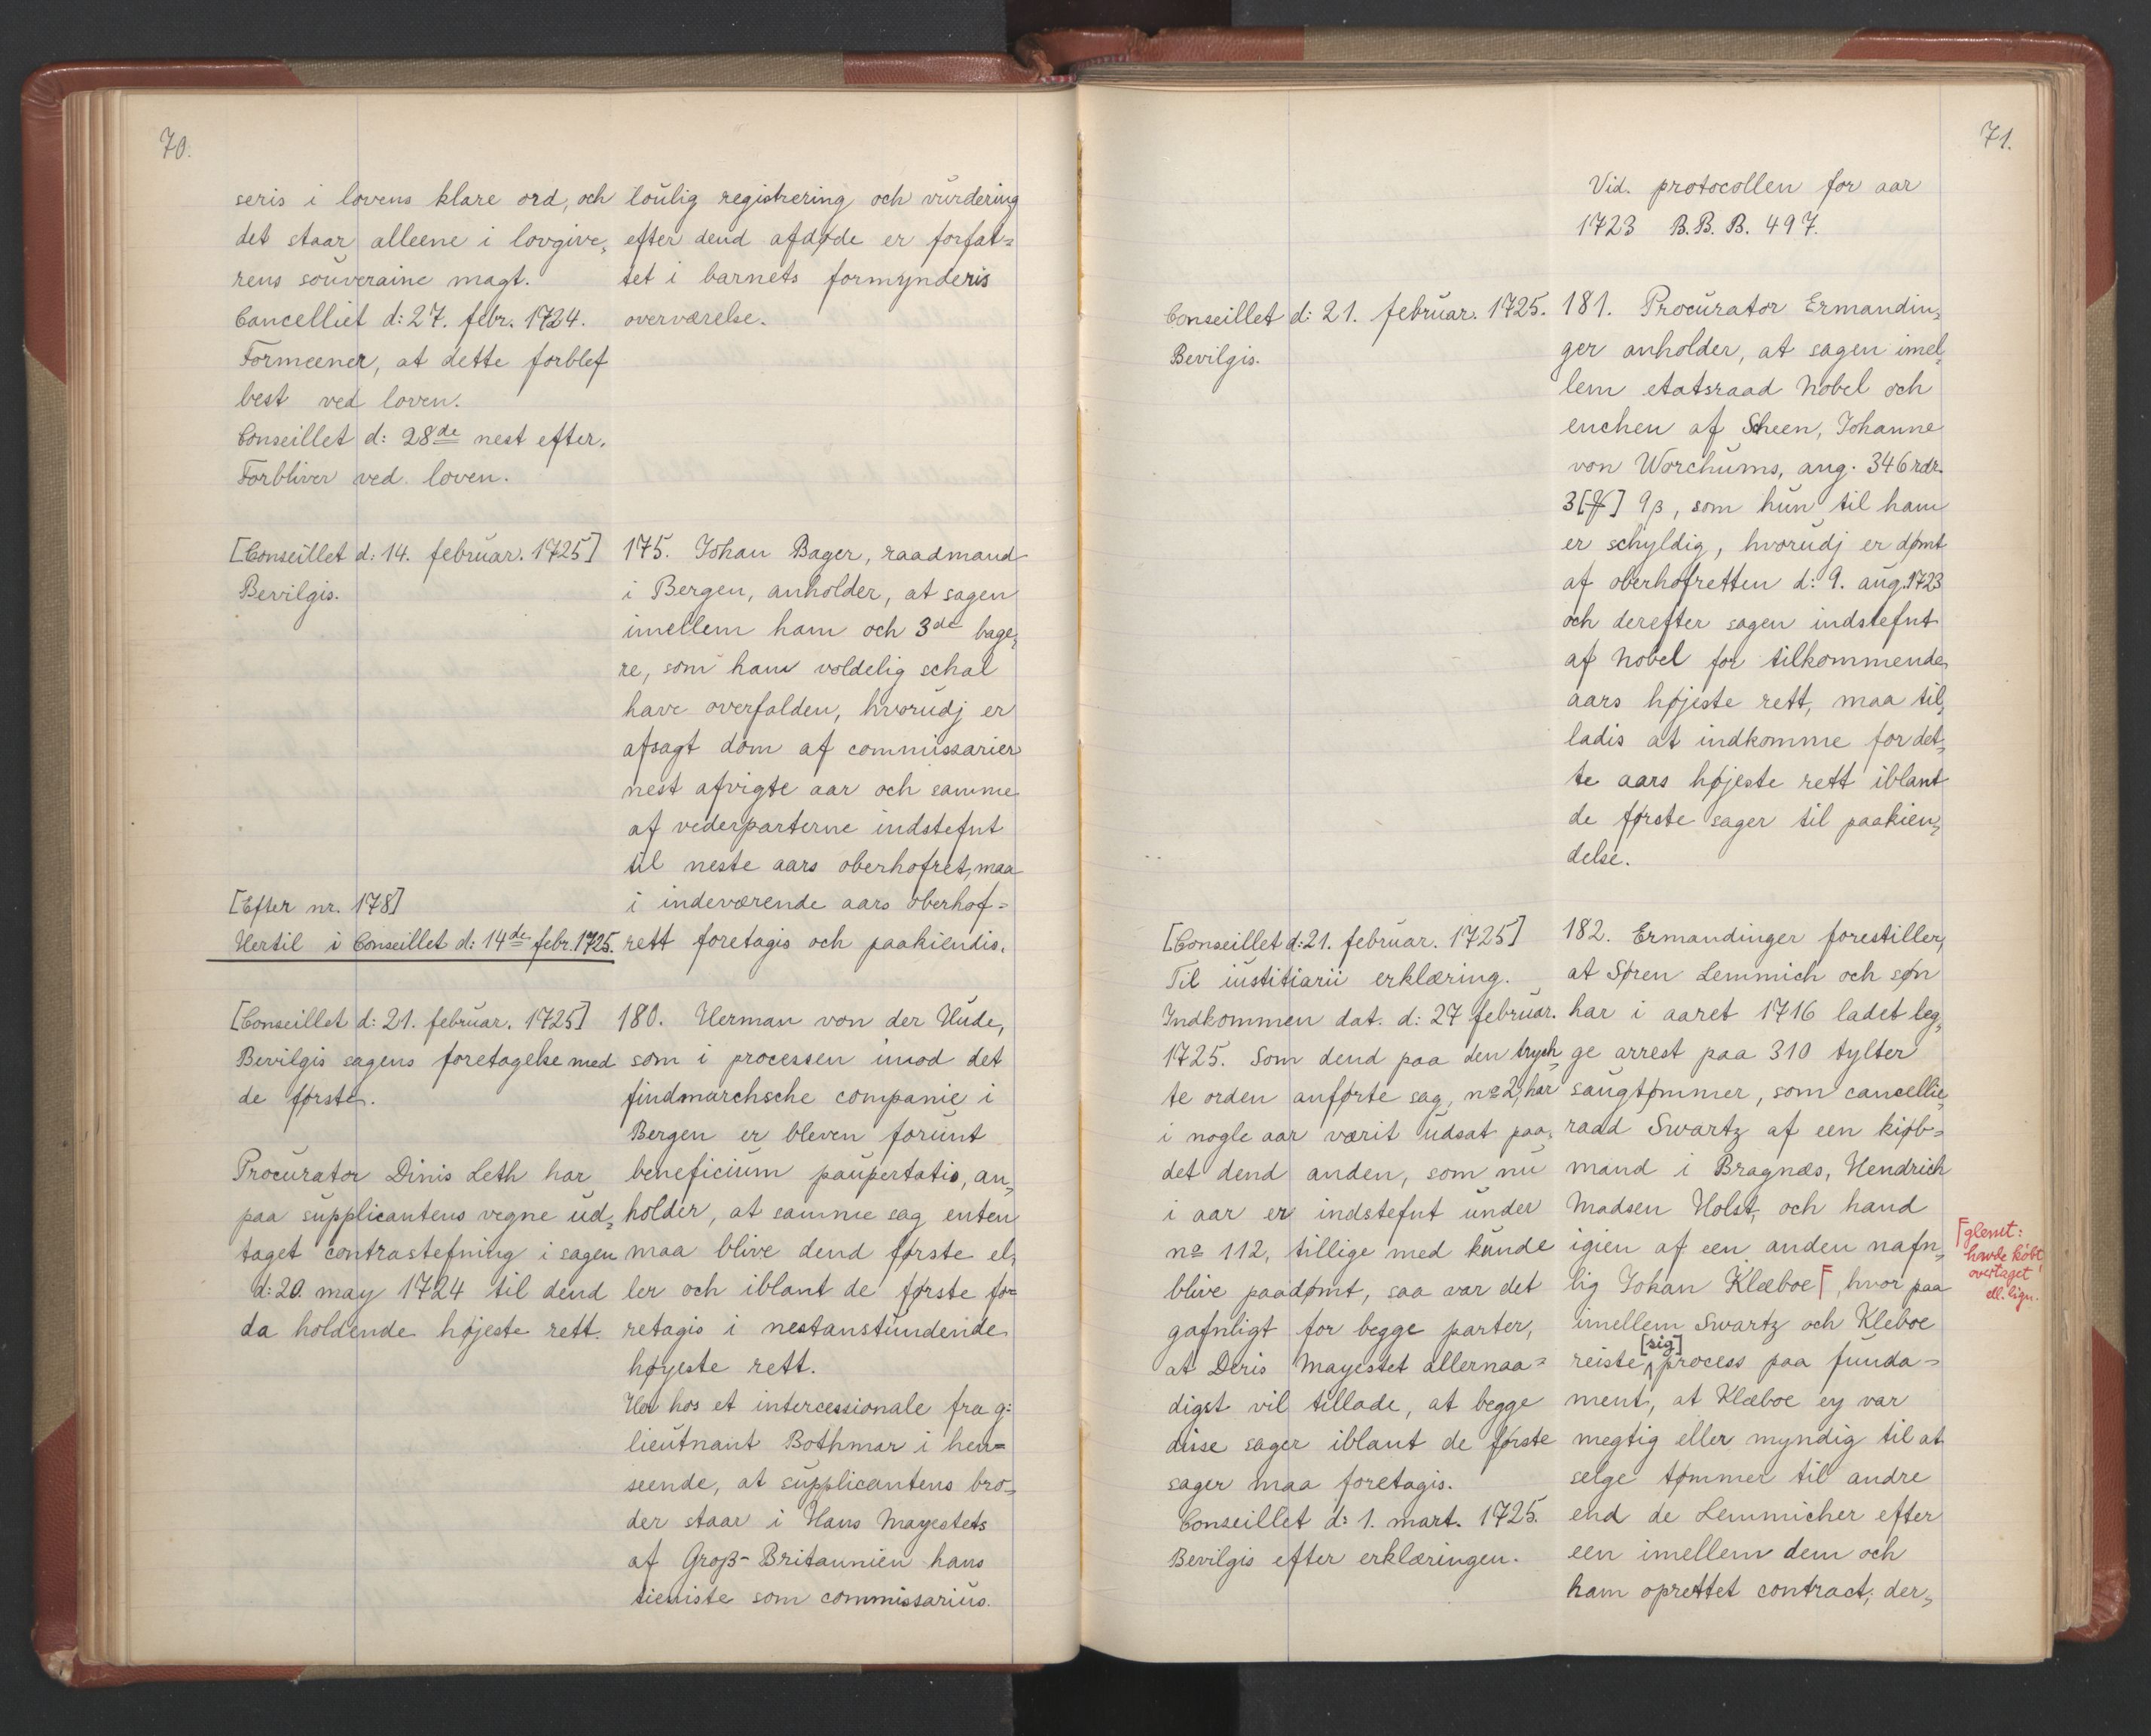 70.
seris i lovens klare ord, och
det staar alleene i lovgive„
rens souveraine magt.
Cancelliet d: 27. febr. 1724.
Formeener, at dette forblef
best ved loven.
Conseillet d: 28de nest efter.
Forbliver ved loven.
loulig registrering och vurdering
efter dend afdøde er forfat=
tet i barnets formynderis
overværelse.
[Conseillet d: 14. februar. 1725]
Bevilgis.
175. Johan Bager, raadmand
i Bergen, anholder, at sagen
imellem ham och 3de bage„
re, som ham voldelig schal
have overfalden, hvorudj er
afsagt dom af commissarier
nest afvigte aar och samme
af vederparterne indstefnt
til neste aars oberhofret, maa
i indeværende aars oberhof=
rett foretagis och paakiendis.
[Efter nr. 178]
Hertil i Conseillet d: 14de febr. 1725.
[Conseillet d: 21. februar. 1725]
Bevilgis sagens foretagelse med
de første.
Procurator Dinis Leth har
paa supplicantens vegne ud„
taget contrastefning i sagen
d: 20. may 1724 til dend
da holdende højeste rett.
180. Herman von der Hude,
som i processen imod det
findmarchsche companie i
Bergen er bleven forunt
beneficium paupertatis, an„
holder, at samme sag enten
maa blive dend første el„
ler och iblant de første fo=
retagis i nestanstundende
høyeste rett.
Her hos et intercessionale fra g:
lieutnant Bothmar i hen=
seende, at supplicantens bro„
der staar i Hans Mayestets
af Groß-Britannien hans
tieniste som commissarius.
71.
Vid. protocollen for aar
1723 B.B.B. 497.
Conseillet d: 21. februar. 1725.
Bevilgis.
181. Procurator Ermandin„
ger anholder, at sagen imel„
lem etatsraad Nobel och
enchen af Scheen, Johanne
von Worchums, ang. 346 rdr.
3 [℔] 9 β, som hun til ham
er schyldig, hvorudj er dømt
af oberhofretten d: 9. aug. 1723
och derefter sagen indstefnt
af Nobel for tilkommende
aars højeste rett, maa til„
ladis at indkomme for det„
te aars højeste rett iblant
de første sager til paakien„
delse.
[Conseillet d: 21. februar. 1725]
Til iustitiarii erklæring.
Indkommen dat. d: 27 februar.
1725. Som dend paa den trych„
te orden anførte sag, no 2, har
i nogle aar værit udsat paa„
det dend anden, som nu
i aar er indstefnt under
no 112, tillige med kunde
blive paadømt, saa var det
gafnligt for begge parter,
at Deris Mayestet allernaa=
digst vil tillade, at begge
disse sager iblant de første
sager maa foretagis.
Conseillet d: 1. mart. 1725.
Bevilgis efter erklæringen.
182. Ermandinger forestiller,
at Søren Lemmich och søn
har i aaret 1716 ladet leg„
ge arrest paa 310 tylter
saugtømmer, som cancellie„
raad Swartz af een kiøb=
mand i Bragnæs, Hendrich
Madsen Holst, och hand
igien af een anden nafn„
lig Johan Klæboe⌈, hvor paa
imellem Swartz och Kleboe
reiste [sig] process paa funda=
ment, at Klæboe ey var
megtig eller myndig til at
selge tømmer til andre
end de Lemmicher efter
een imellem dem och
ham oprettet contract; der„
⌈glemt:
havde købt,
overtaget
ell. lign.